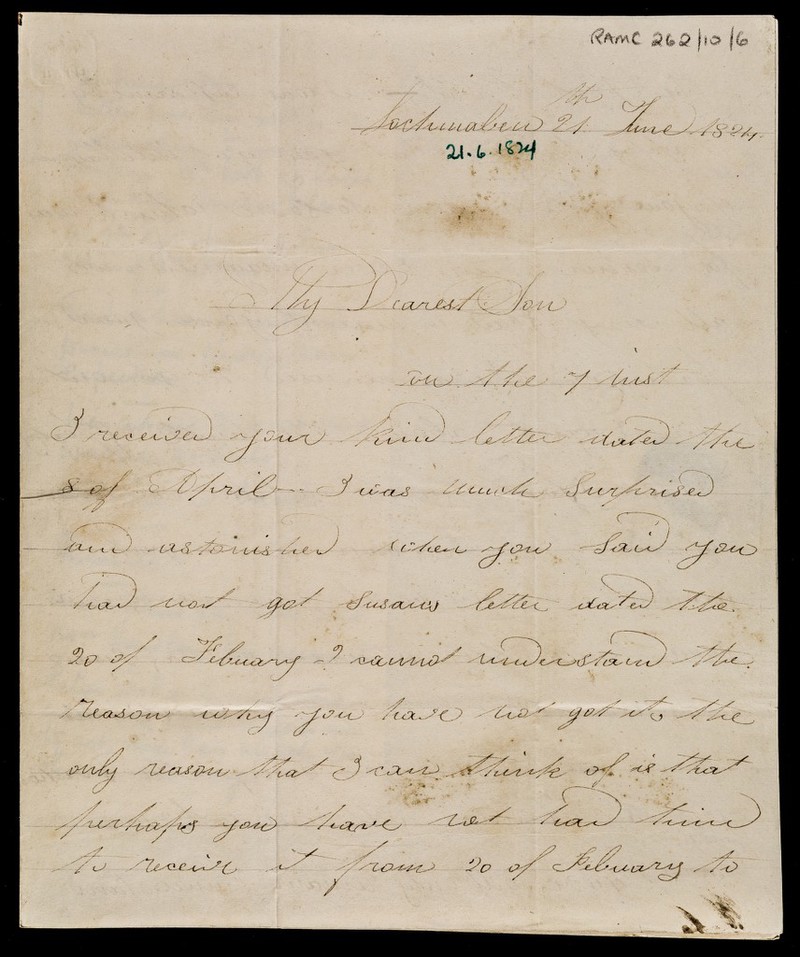 RAMC 262/10/6
Lochmaben 21th June 1824
21.6.1824
My Dearest Son
on the 7 inst
I received your kind letter dated the
8 of April I was much Surprised
and astonished when you Said you
had not got Susans letter dated the
20 of Febuary I cannot understand the
reason why you have not got it, the
only reason that I can think of is that
perhaps you have not had time
to receive it from 20 of Febuary to